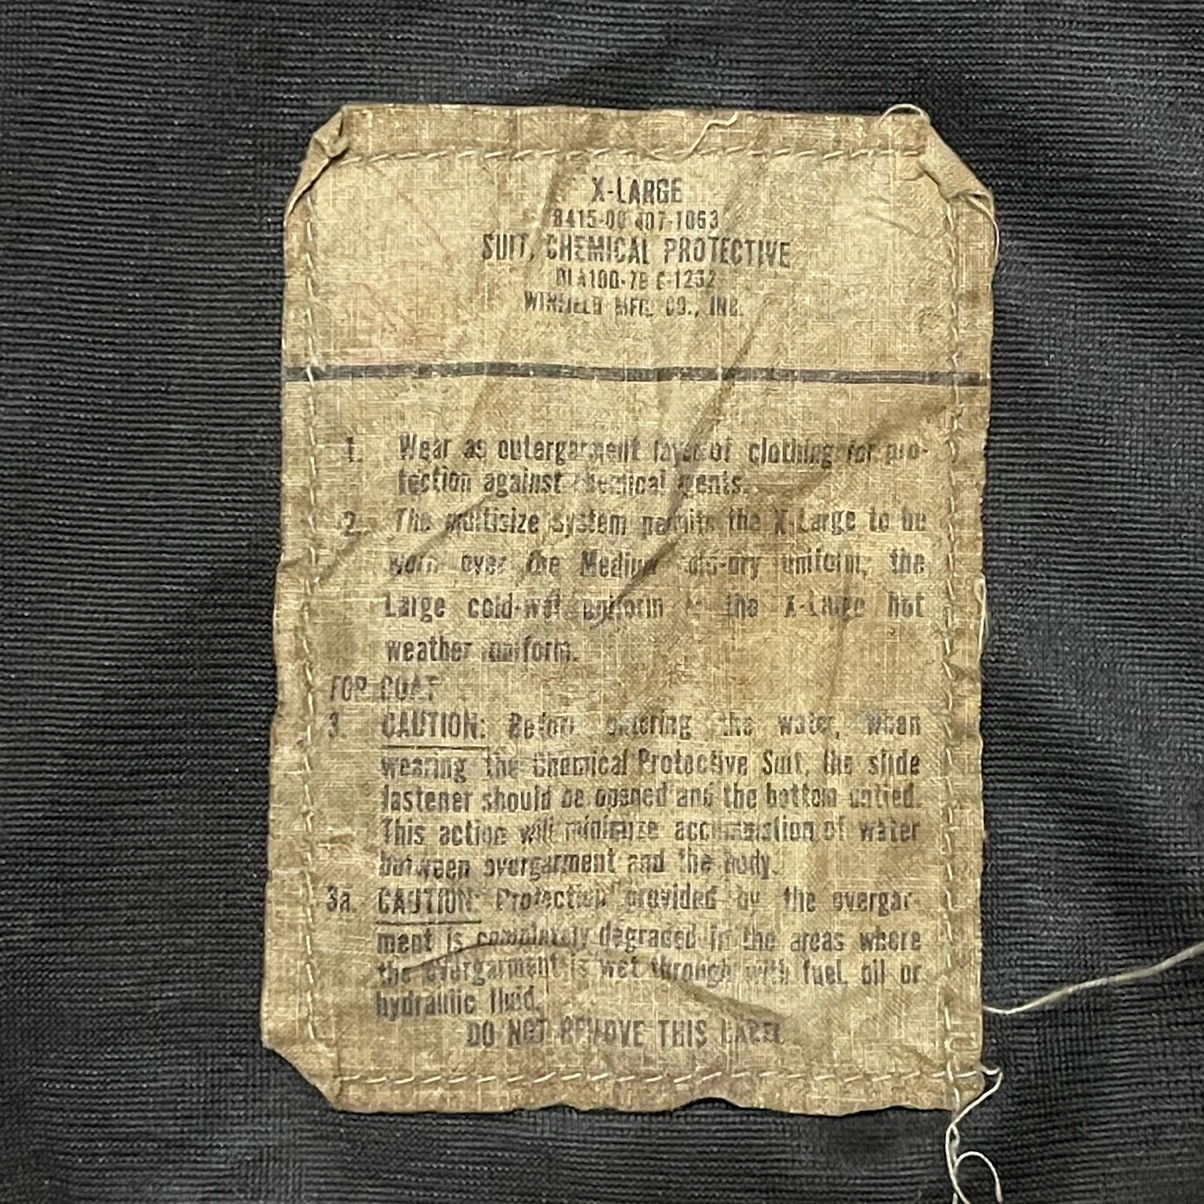 X-LARGE
8415-00-407-1063
SUIT, CHEMICAL PROTECTIVE
DLA100-78-C-1232
WINFIELD MFG. CO., INC.
1. Wear as outergarment layer of clothing for pro-
tection against chemical agents.
2. The multisize system permits the X-Large to be
worn over the Medium cold-dry uniform, the
Large cold-wet uniform & the X-Large hot
weather uniform.
FOR COAT
3. CAUTION: Before entering the water, when
wearing the Chemical Protective Suit, the slide
fastener should be opened and the bottom untied.
This action will minimize accumulation of water
between overgarment and the body.
3a. CAUTION: Protection provided by the overgar-
ment is completely degraded in the areas where
the overgarment is wet through with fuel, oil or
hydraulic fluid.
DO NOT REMOVE THIS LABEL